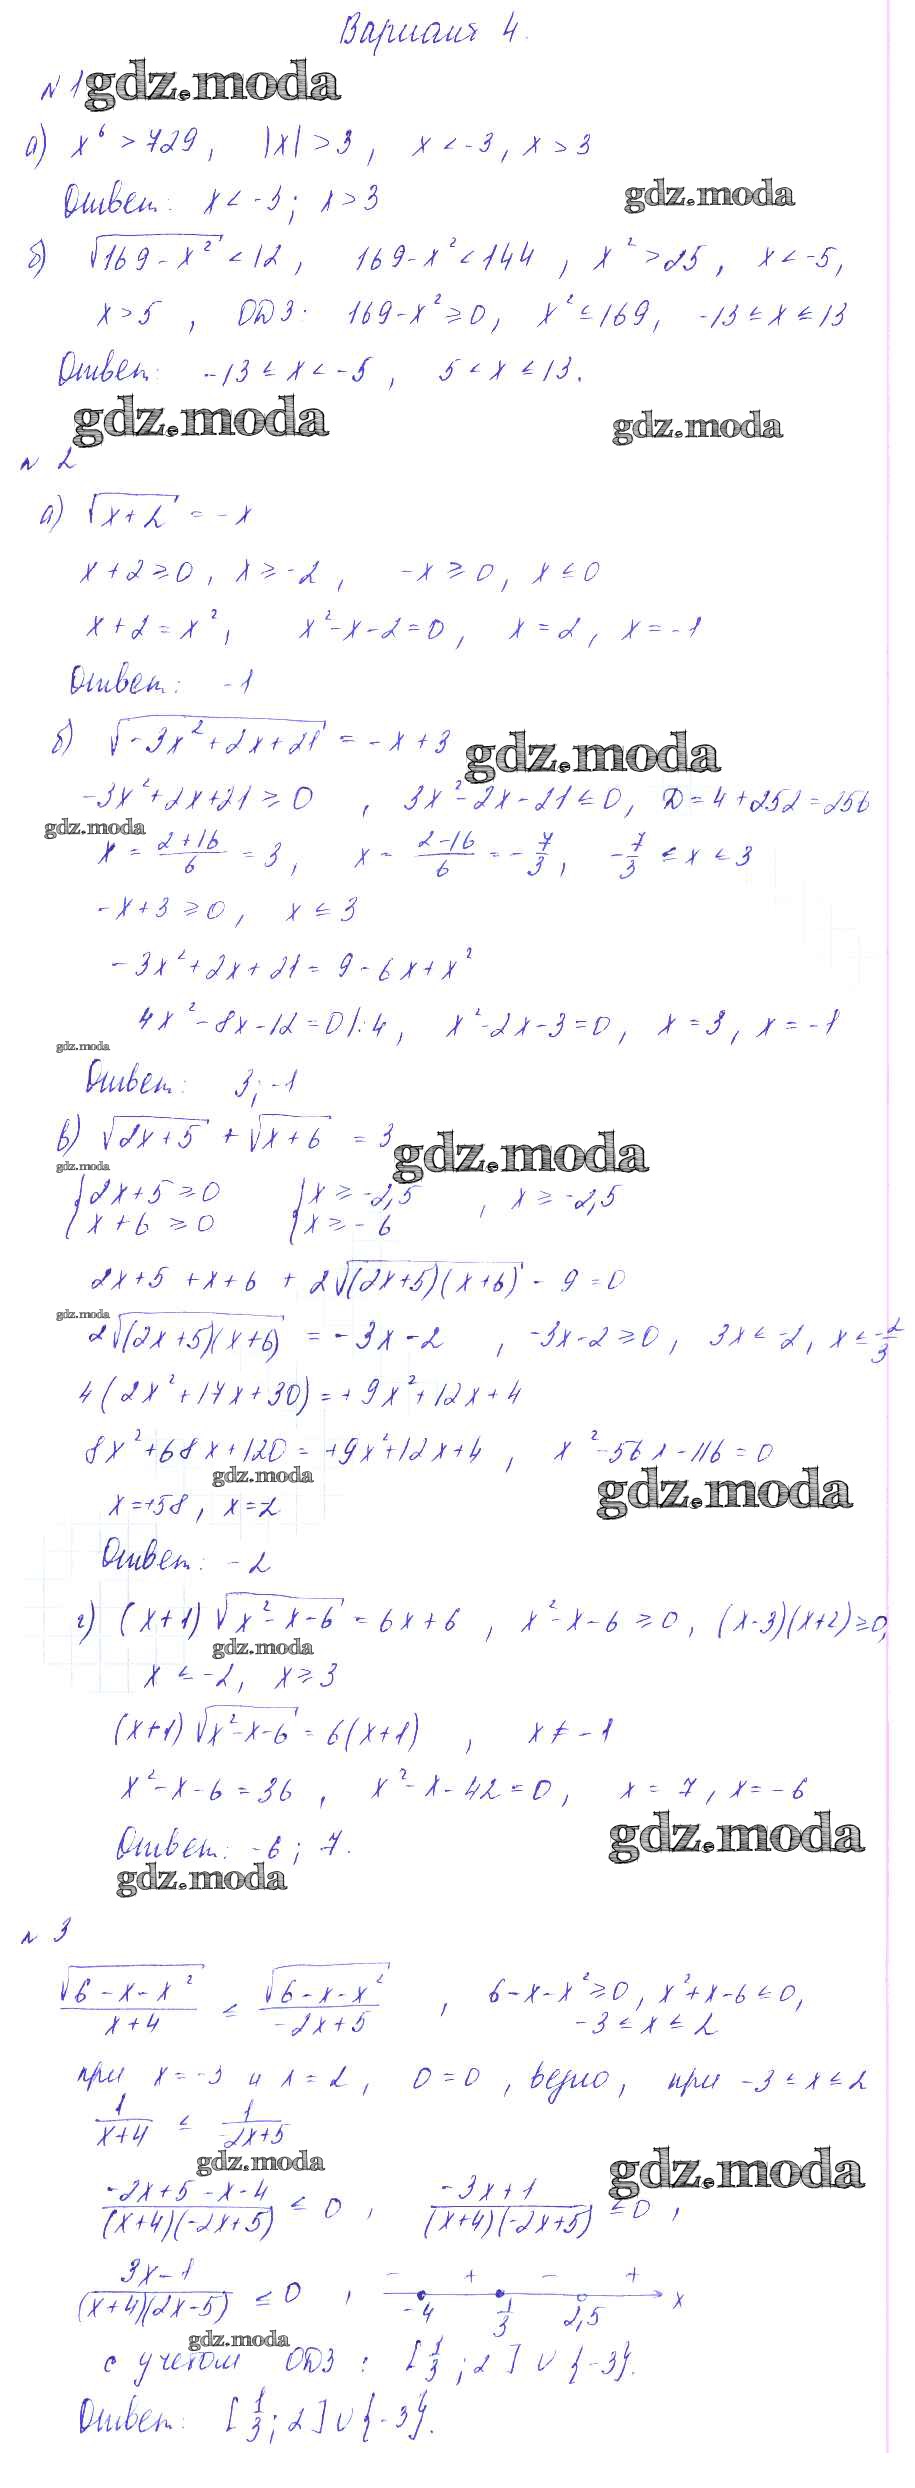 Вариант 4.
N 1
gdz.moda
а) x⁶ > 729, |x| > 3, x < -3, x > 3
Ответ: x < -3; x > 3
gdz.moda
б) √(169 - x²) < 12, 169 - x² < 144, x² > 25, x < -5,
x > 5, ОДЗ: 169 - x² ≥ 0, x² ≤ 169, -13 ≤ x ≤ 13
Ответ: -13 ≤ x < -5, 5 < x ≤ 13.
gdz.moda gdz.moda
N 2
а) √(x + 2) = -x
x + 2 ≥ 0, x ≥ -2, -x ≥ 0, x ≤ 0
x + 2 = x², x² - x - 2 = 0, x = 2, x = -1
Ответ: -1
б) √(-3x² + 2x + 21) = -x + 3
gdz.moda
-3x² + 2x + 21 ≥ 0, 3x² - 2x - 21 ≤ 0, D = 4 + 252 = 256
gdz.moda
x = (2+16)/6 = 3, x = (2-16)/6 = -7/3, -7/3 ≤ x ≤ 3
-x + 3 ≥ 0, x ≤ 3
-3x² + 2x + 21 = 9 - 6x + x²
4x² - 8x - 12 = 0 |:4, x² - 2x - 3 = 0, x = 3, x = -1
gdz.moda
Ответ: 3; -1
в) √(2x + 5) + √(x + 6) = 3
gdz.moda
gdz.moda
{2x + 5 ≥ 0 {x ≥ -2,5, x ≥ -2,5
{x + 6 ≥ 0 {x ≥ -6
2x + 5 + x + 6 + 2√((2x+5)(x+6)) - 9 = 0
gdz.moda
2√((2x+5)(x+6)) = -3x - 2, -3x - 2 ≥ 0, 3x ≤ -2, x ≤ -2/3
4(2x² + 17x + 30) = +9x² + 12x + 4
8x² + 68x + 120 = +9x² + 12x + 4, x² - 56x - 116 = 0
gdz.moda
gdz.moda
x = +58, x = -2
Ответ: -2
г) (x+1)√(x² - x - 6) = 6x + 6, x² - x - 6 ≥ 0, (x-3)(x+2) ≥ 0,
gdz.moda
x ≤ -2, x ≥ 3
(x+1)√(x² - x - 6) = 6(x+1), x ≠ -1
x² - x - 6 = 36, x² - x - 42 = 0, x = 7, x = -6
Ответ: -6; 7.
gdz.moda
gdz.moda
N 3
√(6 - x - x²)/(x+4) ≤ √(6 - x - x²)/(-2x+5), 6 - x - x² ≥ 0, x² + x - 6 ≤ 0,
-3 ≤ x ≤ 2
при x = -3 и x = 2, 0 = 0, верно, при -3 ≤ x ≤ 2
1/(x+4) ≤ 1/(-2x+5)
gdz.moda
gdz.moda
(-2x+5-x-4)/((x+4)(-2x+5)) ≤ 0, (-3x+1)/((x+4)(-2x+5)) ≤ 0,
(3x-1)/((x+4)(2x-5)) ≤ 0, - + - + x
-4 1/3 2,5
gdz.moda
с учетом ОДЗ: [1/3; 2] ∪ {-3}.
Ответ: [1/3; 2] ∪ {-3}.